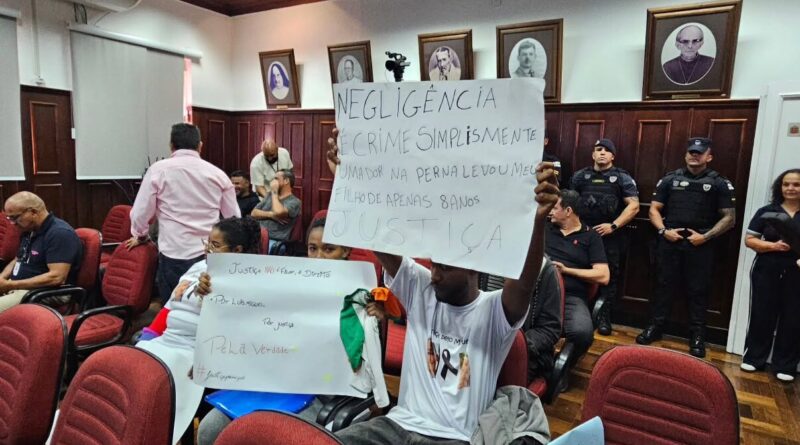 NEGLIGÊNCIA
É CRIME SIMPLISMENTE
UMA DOR NA PERNA LEVOU MEU
FILHO DE APENAS 8 ANOS
JUSTIÇA
JUSTIÇA NÃO É FAVOR, É DIREITO
• POR LUIS MIGUEL
POR JUSTIÇA
PELA VERDADE